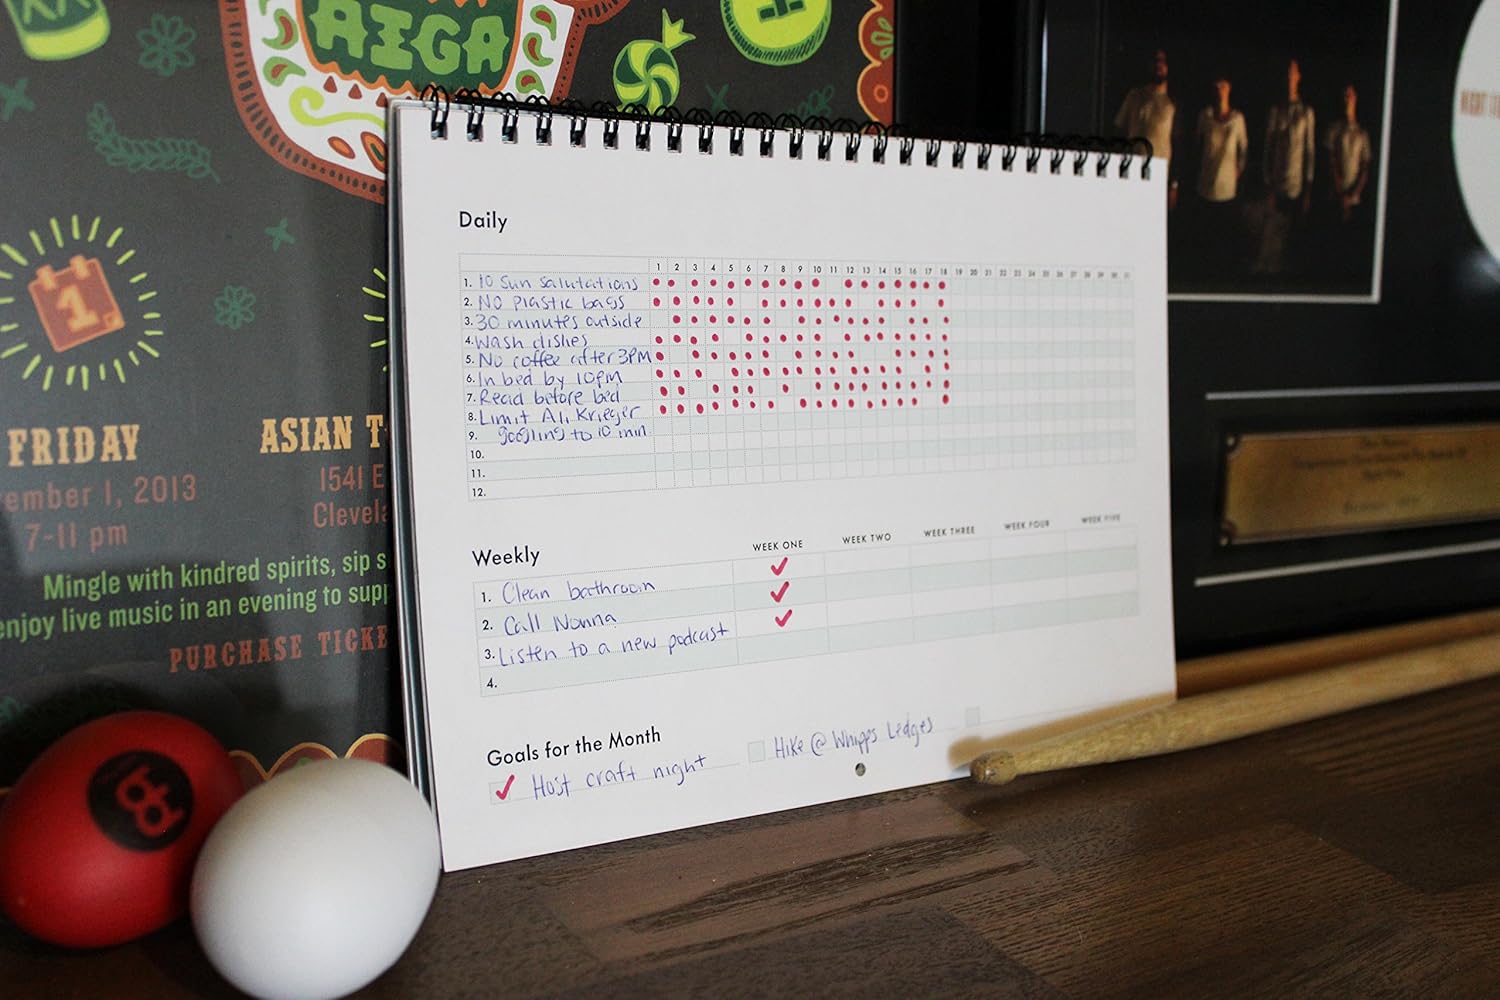 AIGA
1
FRIDAY
ember 1, 2013
7-11 pm
ASIAN T
1541 E
Clevela
Mingle with kindred spirits, sip s
enjoy live music in an evening to supp
PURCHASE TICKE
Daily
1 2 3 4 5 6 7 8 9 10 11 12 13 14 15 16 17 18 19 20 21 22 23 24 25 26 27 28 29 30 31
1. 10 Sun Salutations
2. NO plastic bags
3. 30 minutes outside
4. Wash dishes
5. No coffee after 3PM
6. In bed by 10pm
7. Read before bed
8. Limit Ali Krieger
9. googling to 10 min
10.
11.
12.
Weekly
WEEK ONE WEEK TWO WEEK THREE WEEK FOUR WEEK FIVE
1. Clean bathroom
2. Call Nonna
3. Listen to a new podcast
4.
Goals for the Month
Host craft night
Hike @ Whipps Ledges